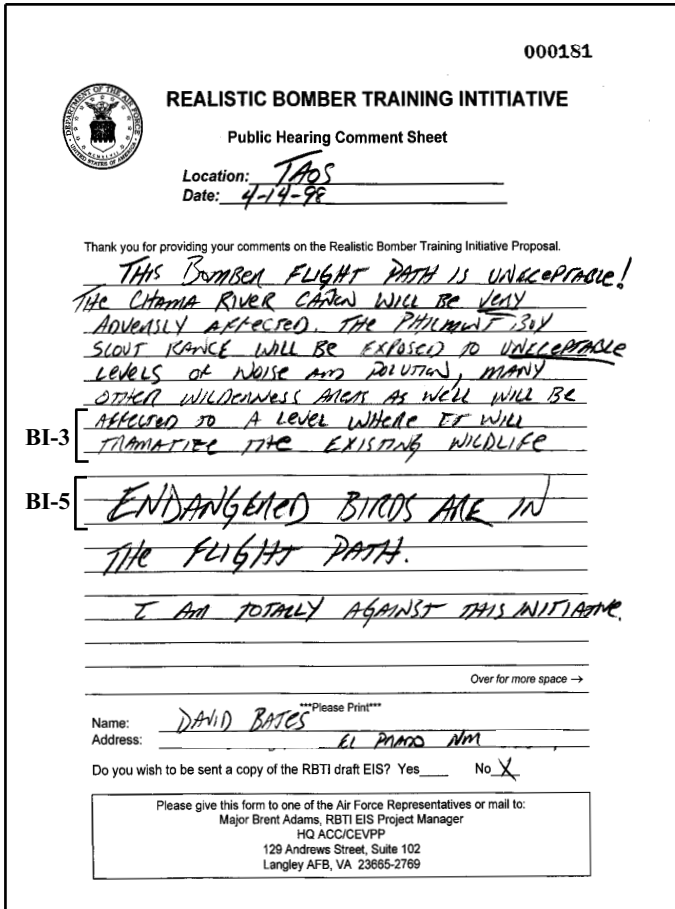 000181
REALISTIC BOMBER TRAINING INTITIATIVE
Public Hearing Comment Sheet
DEPARTMENT OF THE AIR FORCE
UNITED STATES OF AMERICA
Location: TAOS
Date: 4-14-98
Thank you for providing your comments on the Realistic Bomber Training Initiative Proposal.
THIS BOMBER FLIGHT PATH IS UNACCEPTABLE!
THE CHAMA RIVER CAÑON WILL BE VERY
ADVERSLY AFFECTED. THE PHILMONT BOY
SCOUT RANCE WILL BE EXPOSED TO UNACCEPTABLE
LEVELS OF NOISE AND POLUTION, MANY
OTHER WILDERNESS AREAS AS WELL WILL BE
BI-3 AFFECTED TO A LEVEL WHERE IT WILL
TRAMATIZE THE EXISTING WILDLIFE
BI-5 ENDANGERED BIRDS ARE IN
THE FLIGHT PATH.
I AM TOTALLY AGAINST THIS INITIATIVE.
Over for more space →
***Please Print***
Name: DAVID BATES
Address: EL PRADO NM
Do you wish to be sent a copy of the RBTI draft EIS? Yes____ No X
Please give this form to one of the Air Force Representatives or mail to:
Major Brent Adams, RBTI EIS Project Manager
HQ ACC/CEVPP
129 Andrews Street, Suite 102
Langley AFB, VA 23665-2769